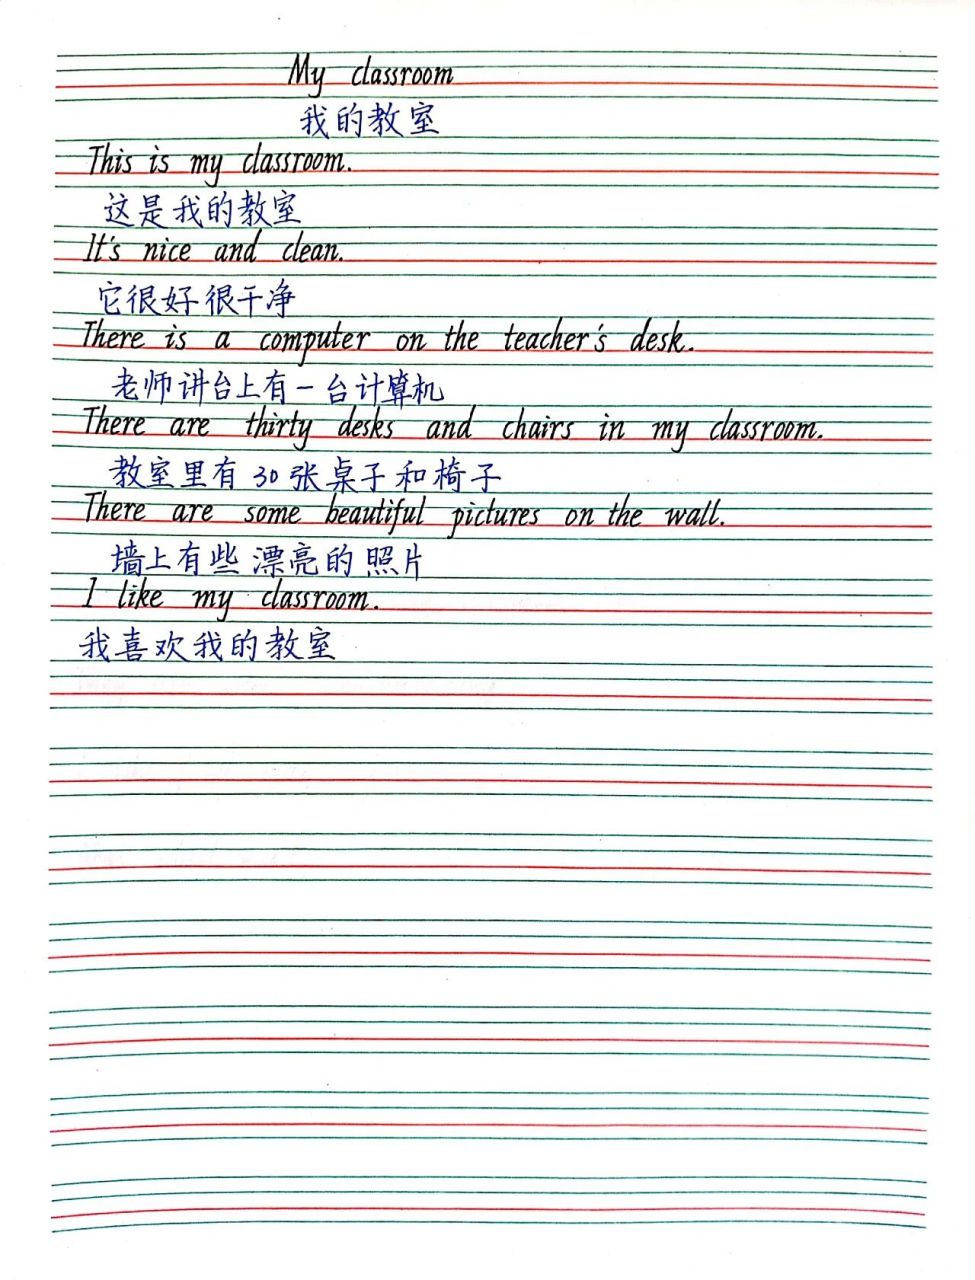 My classroom
我的教室
This is my classroom.
这是我的教室
It's nice and clean.
它很好很干净
There is a computer on the teacher's desk.
老师讲台上有一台计算机
There are thirty desks and chairs in my classroom.
教室里有30张桌子和椅子
There are some beautiful pictures on the wall.
墙上有些漂亮的照片
I like my classroom.
我喜欢我的教室